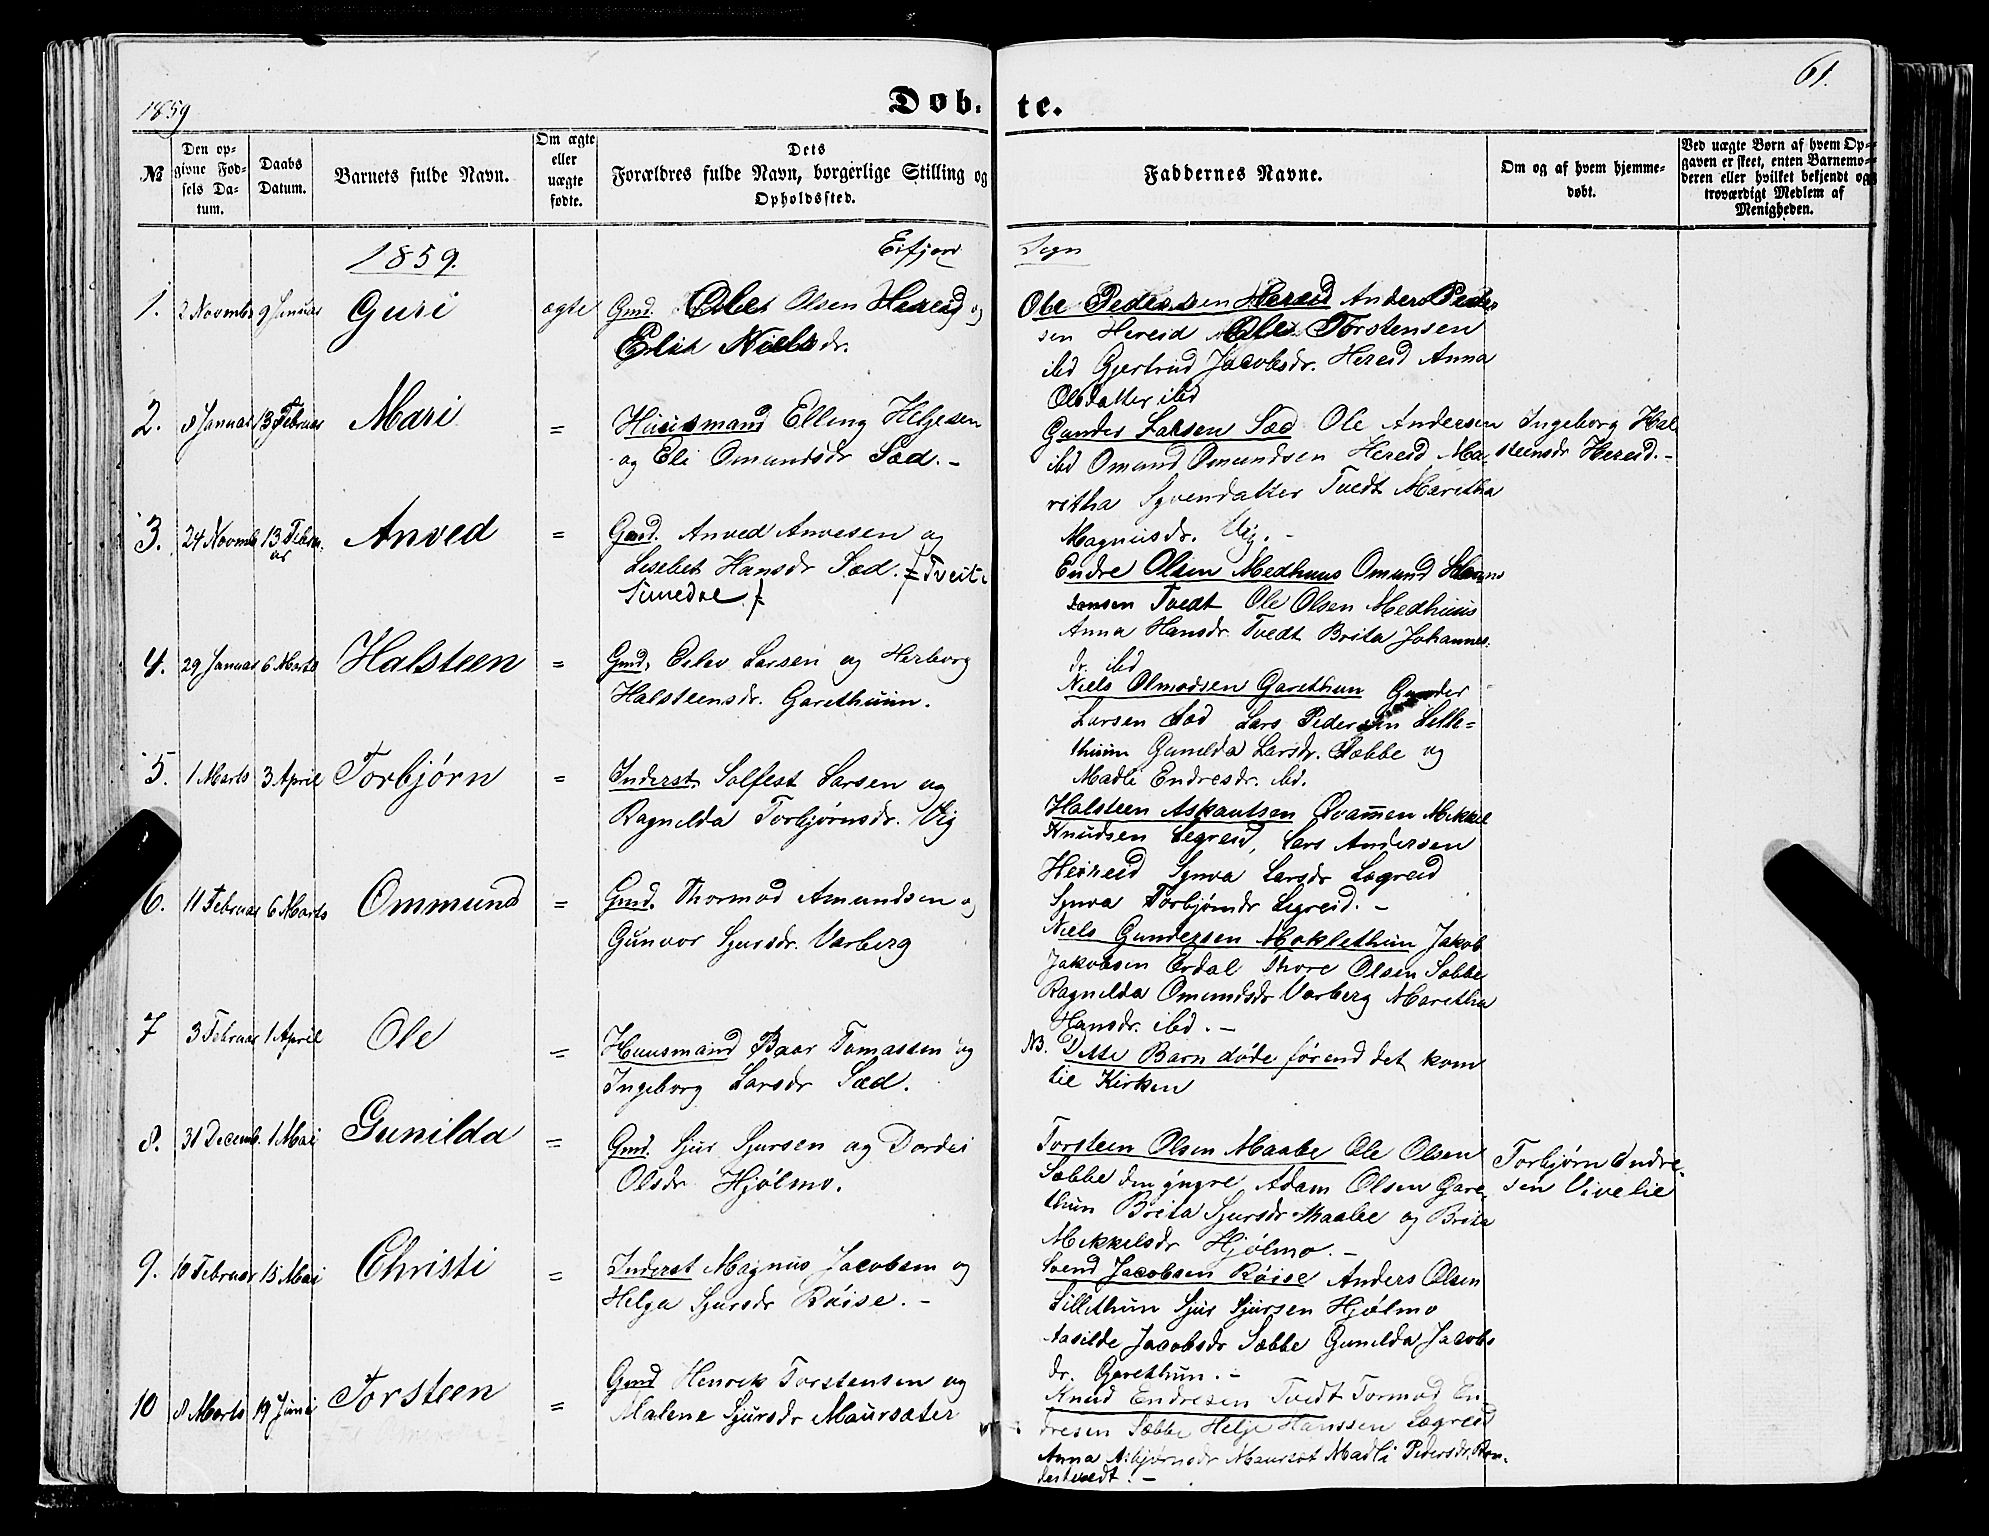 1859
Døb-
te.
61.
№
Den op-
givne Fød-
sels Da-
tum.
Daabs
Datum.
Barnets fulde Navn.
Om ægte
eller
uægte
fødte.
Dets
Forældres fulde Navn, borgerlige Stilling og
Opholdssted.
Faddernes Navne.
Om og af hvem hjemme-
døbt.
Ved uægte Børn af hvem Op-
gaven er skeet, enten Barnemo-
deren eller hvilket bekjendt og
troværdigt Medlem af
Menigheden.
1859.
Eifjord
Sogn
1. 2 Novmbr 9 Januar Guri ægte Gmd. Olsen Hereid og
Niels dr.
Ole Pedersen Hereid Anders Peder
sen Hereid Ole Torstensen
ibd Gjertrud Jacobsdr. Hereid Anna
Olsdatter ibd
2. 8 Januar 13 Februar Mari = Huusmand Elling Helgesen
og Eli Omundsdr Sæd. -
Gunder Larsen Sæd Ole Andersen
ibd Omund Omundsen Hereid Ma-
ritha Syvendatter Tvedt Maritha
Magnusdr. Vig. -
Ingeborg Hal
steensdr Hereid. -
3. 24 Novmb 13 Febru
ar
Anved = Gmd. Anved Anvesen og
Lisebet Hansdr Sæd. Tveit i
Simedal
Endre Olsen Medhuus Omund
Tvedt Ole Olsen Medhuus
Anna Hansdr. Tvedt Brita Johannes
dr. ibd
4. 29 Januar 6 Marts Halsteen = Gmd. Larsen og Herborg
Halsteensdr. Garethuun.
Niels Olmodsen Garethun Gunder
Larsen Sæd Lars Pedersen Lille-
thuun Gunilda Larsdr. Sæbbe og
Madli Endresdr. ibd.
5. 1 Marts 3 April Torbjørn = Inderst. Solfest Larsen og
Ragnilda Torbjørnsdr. Vig
Halsteen Askautsen Qvamen Mikkel
Knudsen Legreid, Lars Andersen
Hereid Synva Larsdr Lægreid
Synva Torbjørnsdr Legreid. -
6. 11 Februar 6 Marts Ommund = Gmd. Thormod Amundsen og
Gunvor Sjursdr. Varberg
Niels Gundersen Moklethun Jakob
Jakobsen Erdal Thore Olsen Sæbbe
Ragnilda Omundsdr Varberg Maretha
Hansdr. ibd. -
7 3 Februar 1 April Ole = Huusmand Baar Tomassen og
Ingeborg Larsdr Sæd.
NB. Dette Barn døde førend det kom
til Kirken
8. 31 Decemb. 1 Mai Gunilda = Gmd. Sjur Sjursen og Dordei
Olsdr Hjølmo.
Torsteen Olsen Maabe Ole Olsen
Sæbbe den yngre, Adam Olsen Gare
thun Brita Sjursdr Maabe og Brita
Mikkelsdr Hjølmo. -
Torbjørn Endre-
sen Vivelie
9. 10 Februar 15 Mai Christi = Inderst Magnus Jacobsen og
Helga Sjursdr Røise. -
Svend Jacobsen Røise Anders Olsen
Lillethun Sjur Sjursen Hjølmo
Aasilde Jacobsdr Sæbbe Gunilda Jacobs
dr. Garethun. -
10 8 Marts 19 Juni Torsteen = Gmd Henrik Torstensen og
Malene Sjursdr Maursæter
Knud Endresen Tvedt Tormod En
dresen Sæbbe Helje Hanssen Lægreid
Anna Asbjørnsdr Maurset Madli Pedersdr.